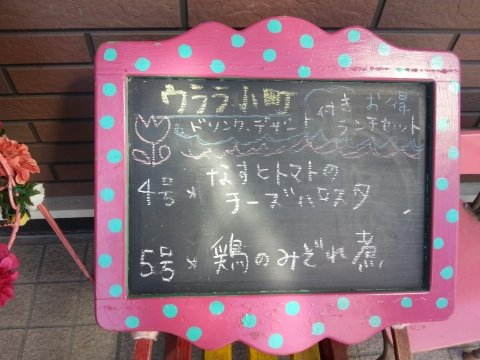 ウララ小町
ドリンク、デザート付き お得ランチセット
4号* なすとトマトの
チーズパスタ
5号* 鶏のみぞれ煮